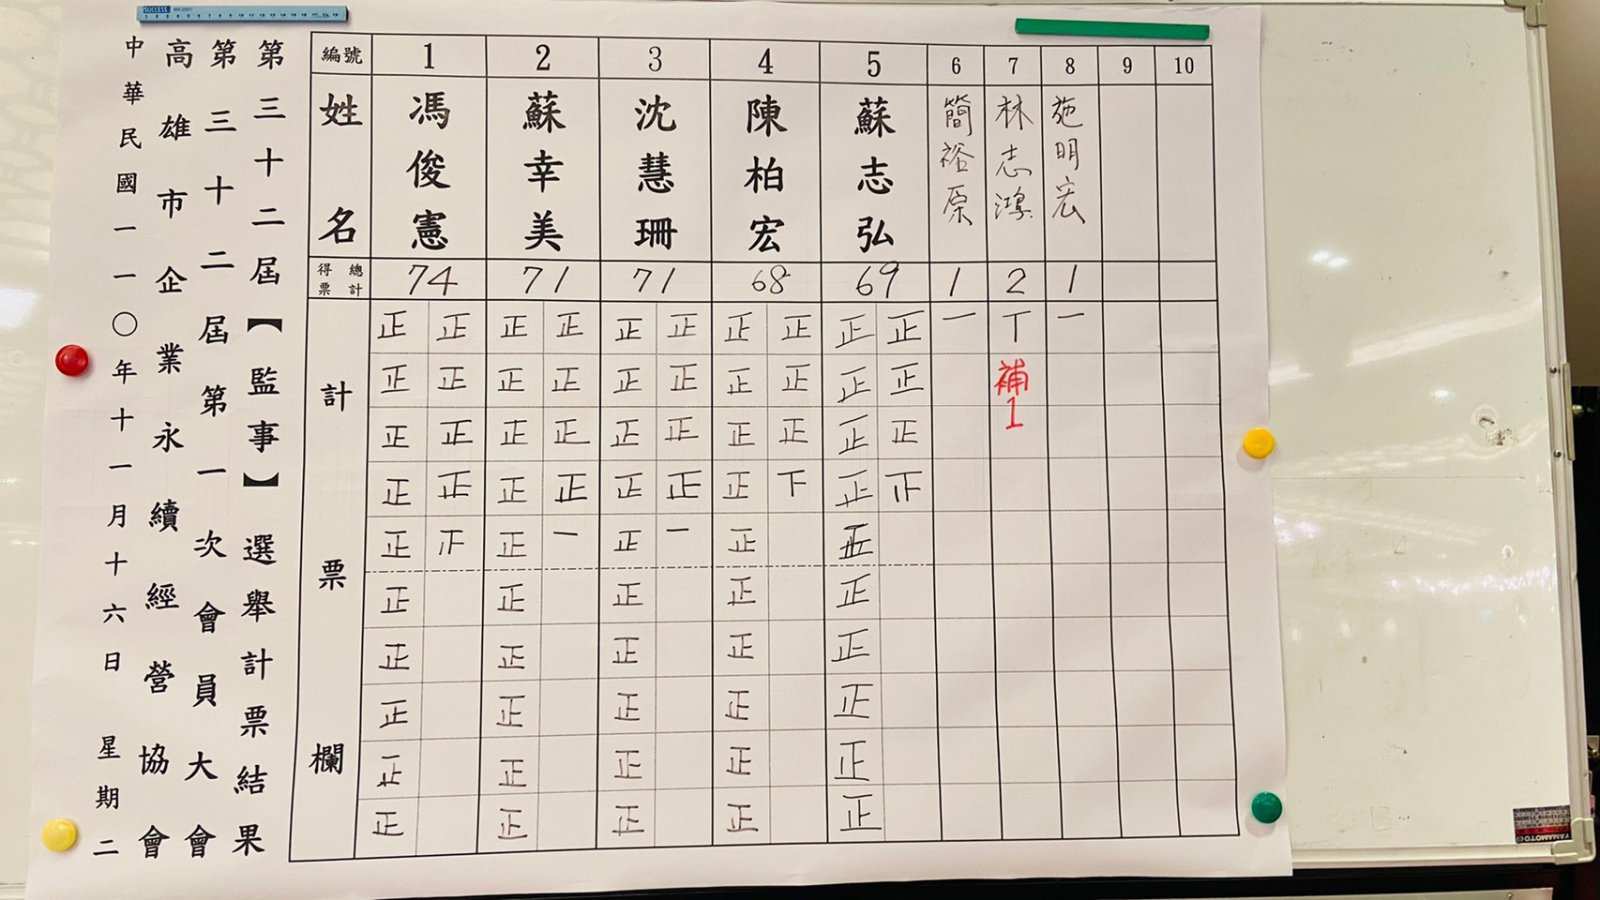 第三十二屆【監事】選舉計票結果
第三十二屆第一次會員大會
高雄市企業永續經營協會
中華民國一一〇年十一月十六日 星期二
編號 1 2 3 4 5 6 7 8 9 10
姓名 馮俊憲 蘇幸美 沈慧珊 陳柏宏 蘇志弘 簡裕原 林志鴻 施明宏
得票總計 74 71 71 68 69 1 2 1
計票欄
正 正 正 正 正 正 正 正 正 正 一 丅 一
正 正 正 正 正 正 正 正 正 正 補1
正 正 正 正 正 正 正 正 正 正
正 正 正 正 正 正 正 下 正 𤴓
正 𤴓 正 一 正 一 正 正
正 正 正 正 正
正 正 正 正 正
正 正 正 正 正
正 正 正 正 正
正 正 正 正 正
SUCCESS
YAMAMOTO